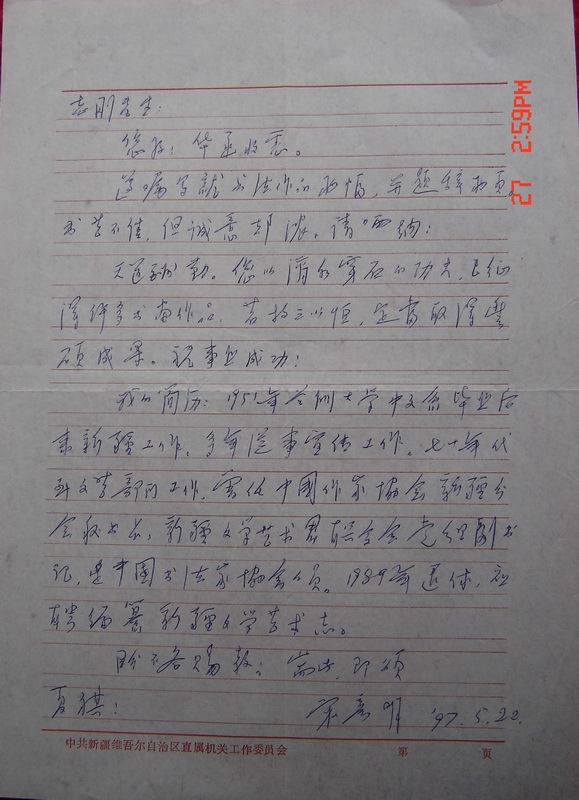 志刚先生：
您好！华函收悉。
遵嘱写就书法作品两幅，并题辞两页。
书艺不佳，但诚意却浓，请哂纳！
天道酬勤。您以滴水穿石的功夫，已征
得许多书画作品，若持之以恒，定当取得丰
硕成果。祝事业成功！
我的简历：1951年兰州大学中文系毕业后
来新疆工作。多年从事宣传工作。七十年代
到文艺部门工作，曾任中国作家协会新疆分
会秘书长、新疆文学艺术界联合会党组副书
记，是中国书法家协会会员。1989年退休，现
聘编纂新疆文学艺术志。
盼不吝赐教。耑此，即颂
夏祺！
宋彦明 '97.5.22.
中共新疆维吾尔自治区直属机关工作委员会 第 页
27 2:59PM